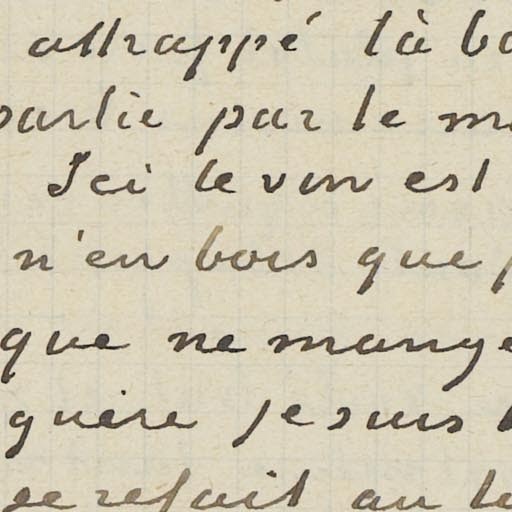 attrappé là ba
partie par le m
Ici le vin est
n'en bois que p
que ne mange
guère je suis
se refait au